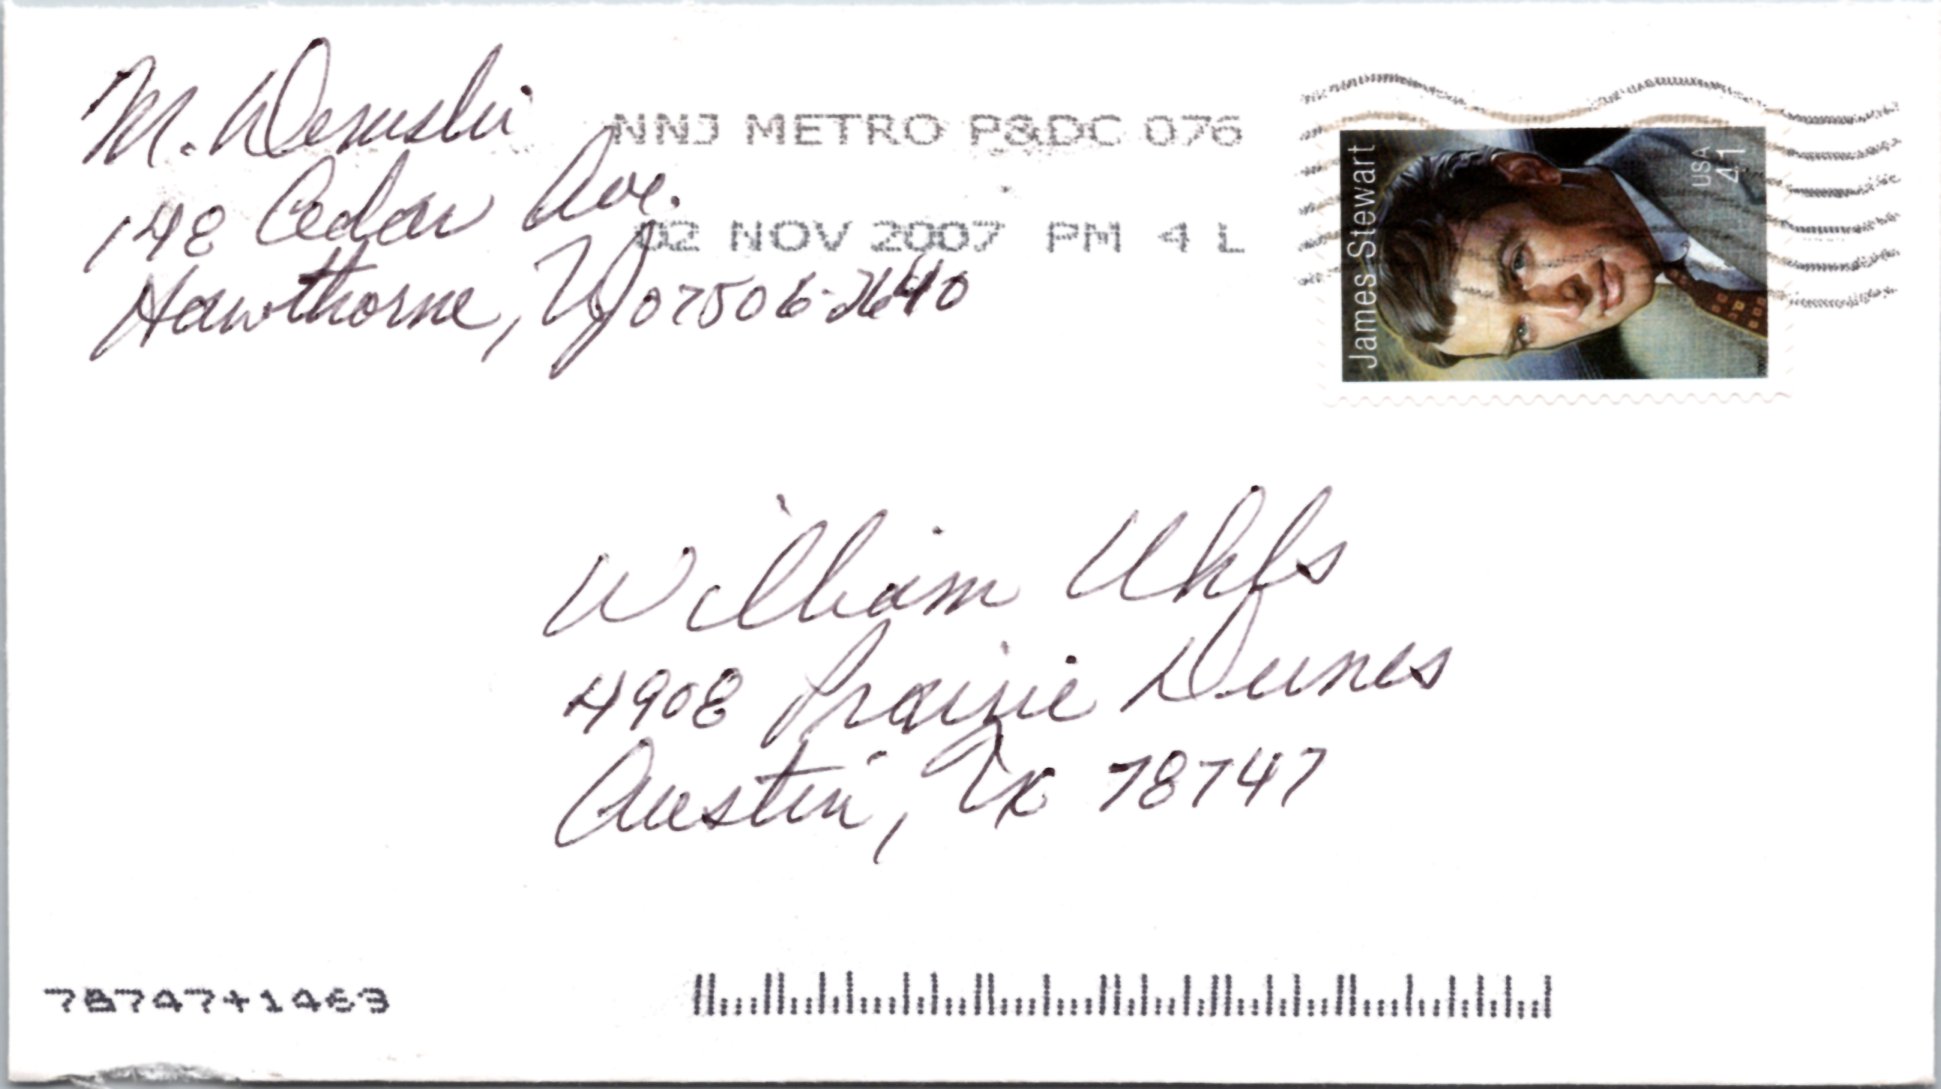 M. Deruski
148 Cedar Ave.
Hawthorne, NJ 07506-2640
NNJ METRO P&DC 076
02 NOV 2007 PM 4 L
James Stewart
USA 41
2007
William Uhfs
4908 Prairie Dunes
Austin, Tx 78747
78747+1463